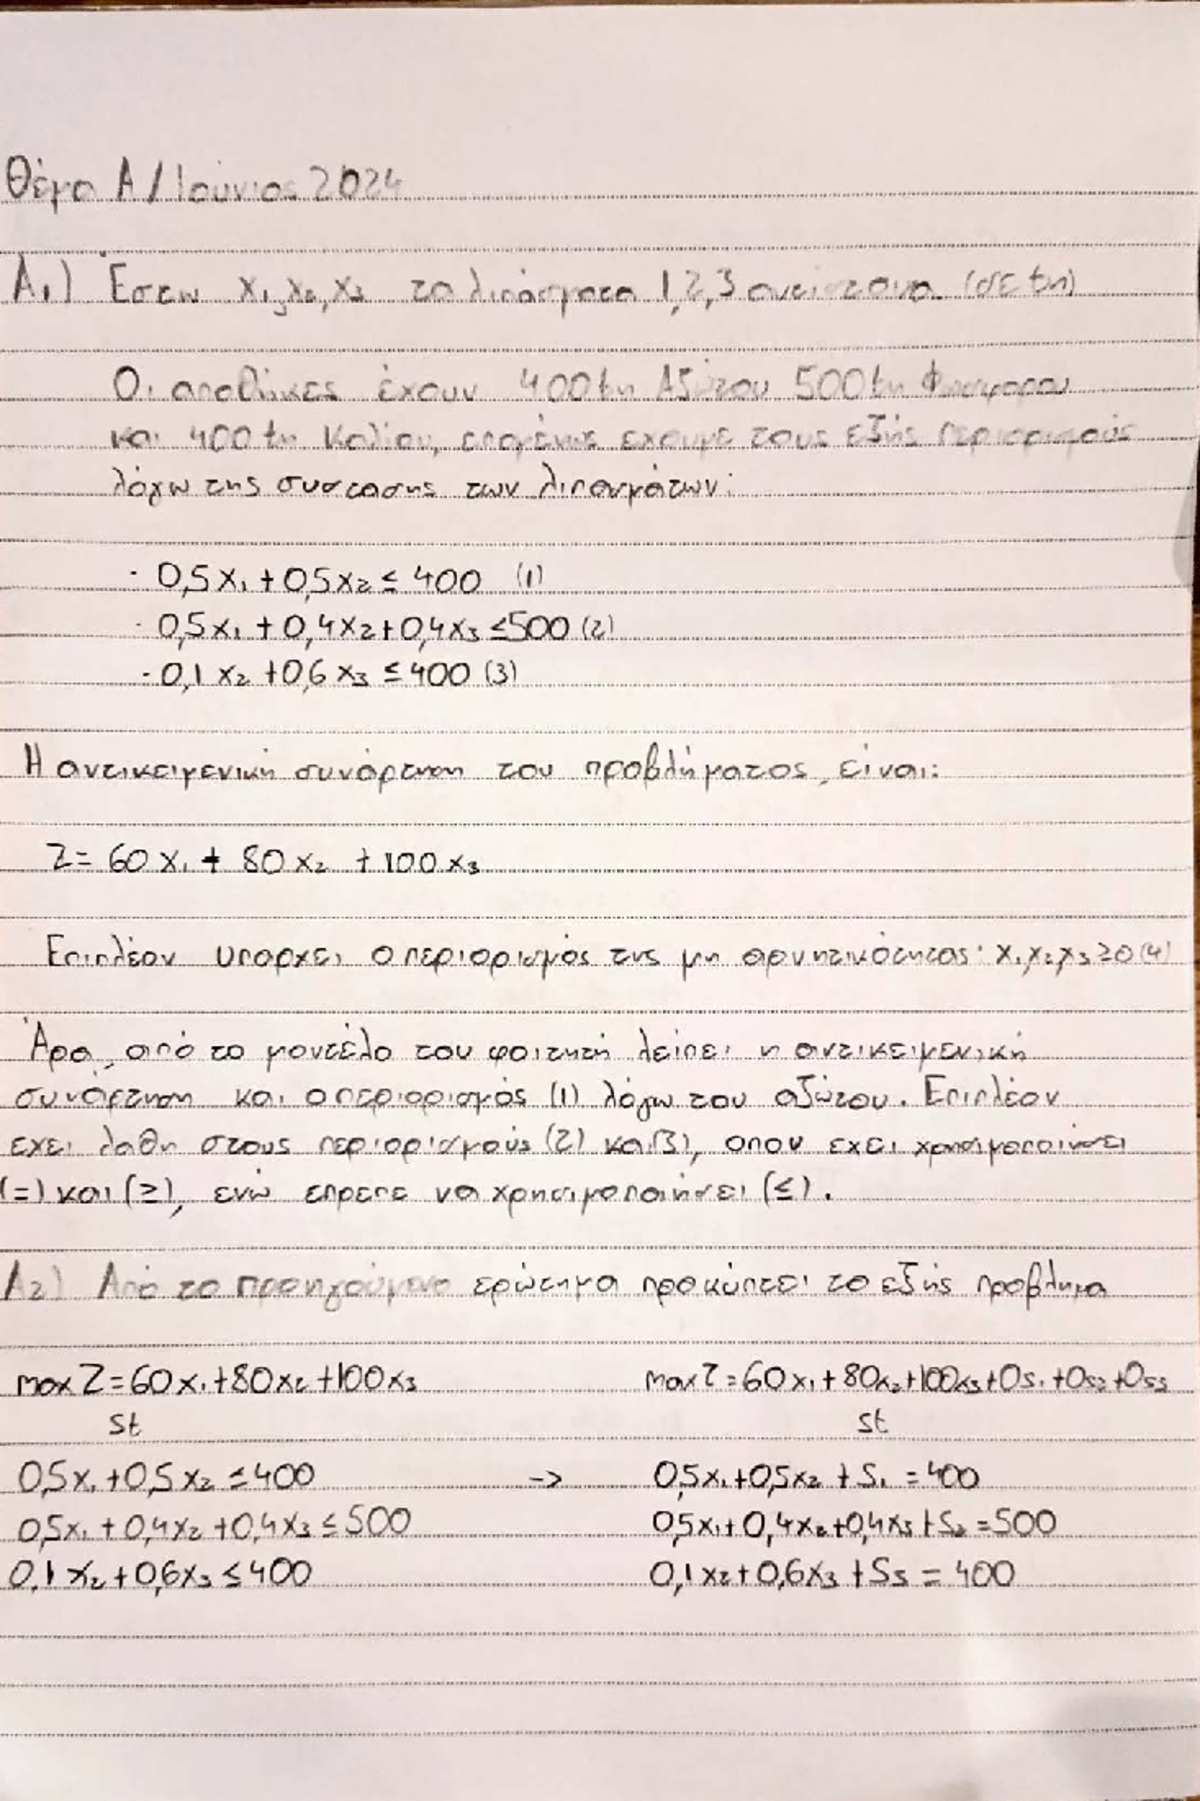 Θέμα Α / Ιούνιος 2024
Α₁) Έστω x₁,x₂,x₃ τα λιπάσματα 1,2,3 αντίστοιχα. (σε tn)
Οι αποθήκες έχουν 400tn Αζώτου 500tn Φωσφορου
και 400tn Καλίου, επομένως εχουμε τους εξής περιορισμούς
λόγω της συστασης των λιπασμάτων:
· 0,5x₁ + 0,5x₂ ≤ 400 (1)
· 0,5x₁ + 0,4x₂ + 0,4x₃ ≤ 500 (2)
- 0,1x₂ + 0,6x₃ ≤ 400 (3)
Η αντικειμενική συνάρτηση του προβλήματος, είναι:
Z = 60x₁ + 80x₂ + 100x₃
Επιπλέον υπαρχει ο περιορισμός της μη αρνητικότητας: x₁,x₂,x₃ ≥ 0 (4)
Άρα, από το μοντέλο του φοιτητή λείπει η αντικειμενική
συνάρτηση και ο περιορισμός (1) λόγω του αζώτου. Επιπλέον
εχει λαθη στους περιορισμούς (2) και (3), οπου εχει χρησιμοποιήσει
(=) και (≥), ενώ επρεπε να χρησιμοποιήσει (≤).
Α₂) Από το προηγούμενο ερώτημα προκύπτει το εξής προβλημα
max Z = 60x₁ + 80x₂ + 100x₃ max Z = 60x₁ + 80x₂ + 100x₃ + 0s₁ + 0s₂ + 0s₃
st st
0,5x₁ + 0,5x₂ ≤ 400 -> 0,5x₁ + 0,5x₂ + S₁ = 400
0,5x₁ + 0,4x₂ + 0,4x₃ ≤ 500 0,5x₁ + 0,4x₂ + 0,4x₃ + S₂ = 500
0,1x₂ + 0,6x₃ ≤ 400 0,1x₂ + 0,6x₃ + S₃ = 400